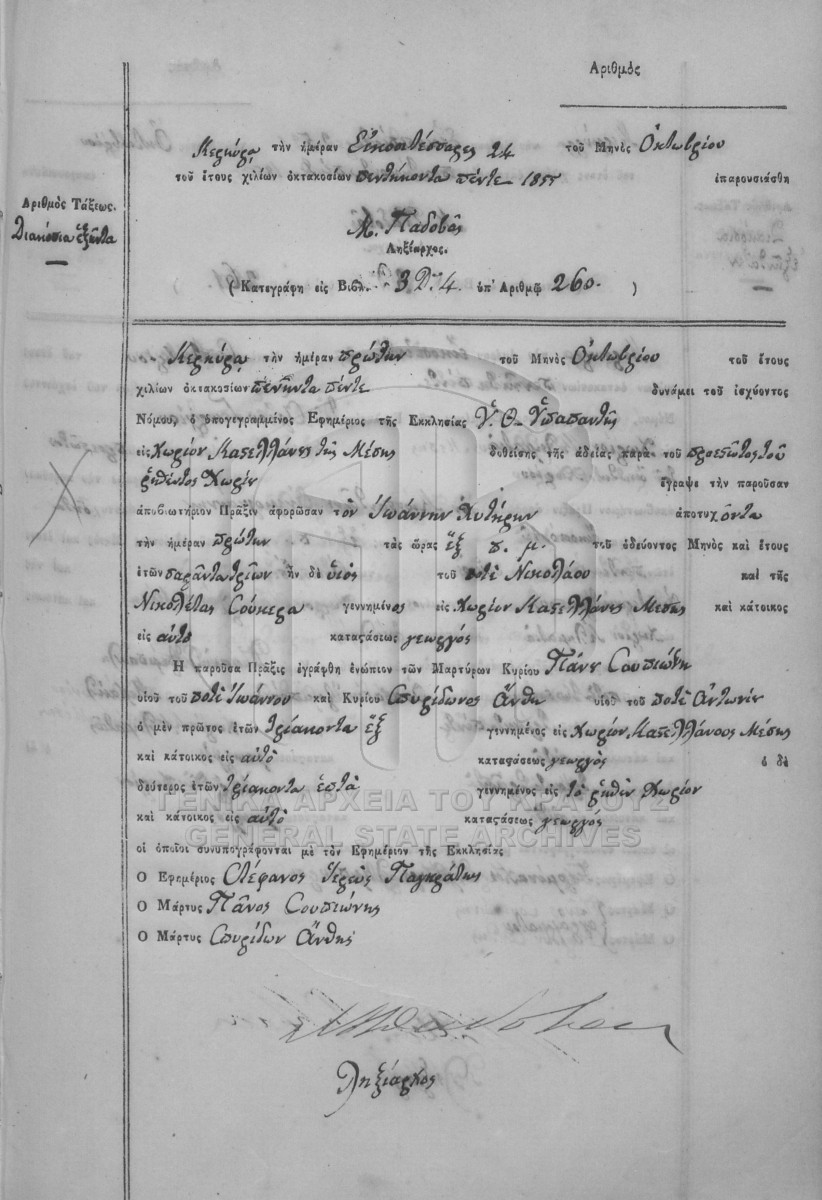 Αριθμός
Κερκύρα τὴν ἡμέραν Εἰκοσιτέσσαρες 24 τοῦ Μηνὸς Ὀκτωβρίου
τοῦ ἔτους χιλίων ὀκτακοσίων πενθήκοντα πέντε 1855 ἐπαρουσιάσθη
Αριθμὸς Τάξεως.
Διακόσια ἑξῆντα
Μ. Παδοβᾶς
Ληξίαρχος.
( Κατεγράφη εἰς Βιβλ. 3 D. 4. ὑπ' Αριθμῷ 260. )
Κερκύρα τὴν ἡμέραν πρώτην τοῦ Μηνὸς Ὀκτωβρίου τοῦ ἔτους
χιλίων ὀκτακοσίων πενῆντα πέντε δυνάμει τοῦ ἰσχύοντος
Νόμου, ὁ ὑπογεγραμμένος Εφημέριος τῆς Εκκλησίας Ὑ. Θ. Ὑπαπαντῆς
εἰς Χωρίον Καπελλάνες τῆς Μέσης δοθείσης τῆς ἀδείας παρὰ τοῦ προεστῶτος τοῦ
ῥηθέντος Χωρίου ἔγραψε τὴν παροῦσαν
ἀποβιωτήριον Πρᾶξιν ἀφορῶσαν τὸν Ἰωάννην Χυτήρην ἀποτυχόντα
τὴν ἡμέραν πρώτην τὰς ὥρας ἕξ π. μ. τοῦ ὁδεύοντος Μηνὸς καὶ ἔτους
ἐτῶν σαράντα τριῶν ἦν δὲ υἱὸς τοῦ ποτὲ Νικολάου καὶ τῆς
Νικολέτας Σούκερα γεννημένος εἰς Χωρίον Καπελλάνες Μέσης καὶ κάτοικος
εἰς αὐτὸ καταςάσεως γεωργός
Ἡ παροῦσα Πρᾶξις ἐγράφθη ἐνώπιον τῶν Μαρτύρων Κυρίου Πάνν Σουπιώνη
υἱοῦ τοῦ ποτὲ Ἰωάννου καὶ Κυρίου Σπυρίδωνος Ἄνθη υἱοῦ τοῦ ποτὲ Ἀντωνίν
ὁ μὲν πρῶτος ἐτῶν τριάκοντα ἕξ γεννημένος εἰς Χωρίον Καπελλάνους Μέσης
καὶ κάτοικος εἰς αὐτὸ καταςάσεως γεωργὸς ὁ δὲ
δεύτερος ἐτῶν τριάκοντα ἑπτὰ γεννημένος εἰς τὸ ῥηθὲν Χωρίον
καὶ κάτοικος εἰς αὐτὸ καταςάσεως γεωργός
οἱ ὁποῖοι συνυπογράφονται μὲ τὸν Εφημέριον τῆς Εκκλησίας
Ο Εφημέριος Στέφανος Ἱερεὺς Παγκράτης
Ο Μάρτυς Πάνος Σουπιώνης
Ο Μάρτυς Σπυρίδων Ἄνθης
Ληξίαρχος
ΓΕΝΙΚΑ ΑΡΧΕΙΑ ΤΟΥ ΚΡΑΤΟΥΣ
GENERAL STATE ARCHIVES